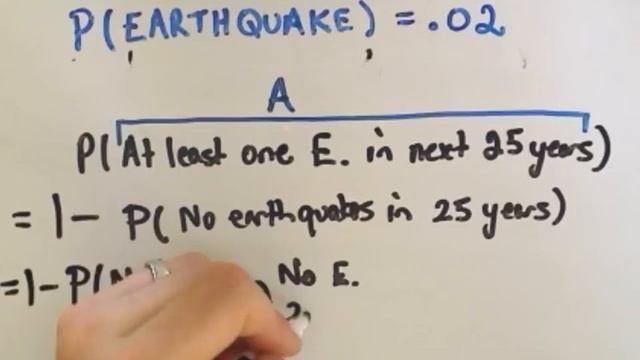 P(EARTHQUAKE) = .02
A
P(At least one E. in next 25 years)
= 1 - P(No earthquakes in 25 years)
= 1 - P( No E.